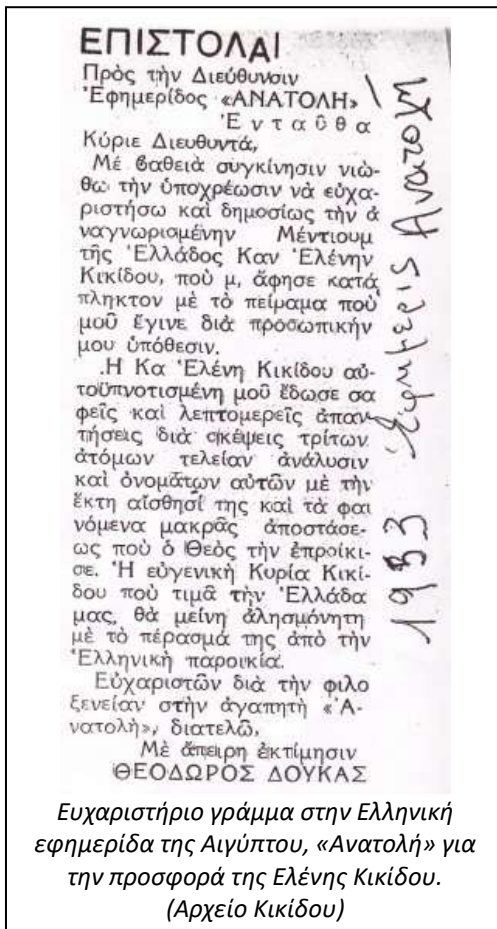 ΕΠΙΣΤΟΛΑΙ
Πρὸς τὴν Διεύθυνσιν
Ἐφημερίδος «ΑΝΑΤΟΛΗ»
Ἐνταῦθα
Κύριε Διευθυντά,
Μέ βαθειὰ συγκίνησιν νιώ-
θω τὴν ὑποχρέωσιν νὰ εὐχα-
ριστήσω καὶ δημοσίως τὴν ἀ
ναγνωρισμένην Μέντιουμ
τῆς Ἑλλάδος Καν Ἑλένην
Κικίδου, ποὺ μ, ἄφησε κατά
πληκτον μὲ τὸ πείραμα ποὺ
μοῦ ἔγινε διὰ προσωπικήν
μου ὑπόθεσιν.
.Η Κα Ἑλένη Κικίδου αὐ-
τοϋπνοτισμένη μοῦ ἔδωσε σα
φεῖς καὶ λεπτομερεῖς ἀπαν-
τήσεις διὰ σκέψεις τρίτων
ἀτόμων τελείαν ἀνάλυσιν
καὶ ὀνομάτων αὐτῶν μὲ τὴν
ἕκτη αἴσθησί της καὶ τὰ φαι
νόμενα μακρᾶς ἀποστάσε-
ως ποὺ ὁ Θεὸς τὴν ἐπροίκι-
σε. Ἡ εὐγενικὴ Κυρία Κικί-
δου ποὺ τιμᾶ τὴν Ἑλλάδα
μας, θὰ μείνη ἀλησμόνητη
μὲ τὸ πέρασμά της ἀπὸ τὴν
Ἑλληνικὴ παροικία.
Εὐχαριστῶν διὰ τὴν φιλο
ξενείαν στὴν ἀγαπητὴ «Ἀ-
νατολὴ», διατελῶ,
Μὲ ἄπειρη ἐκτίμησιν
ΘΕΟΔΩΡΟΣ ΔΟΥΚΑΣ
1983 Ἐφημερις Ανατολη
Ευχαριστήριο γράμμα στην Ελληνική
εφημερίδα της Αιγύπτου, «Ανατολή» για
την προσφορά της Ελένης Κικίδου.
(Αρχείο Κικίδου)